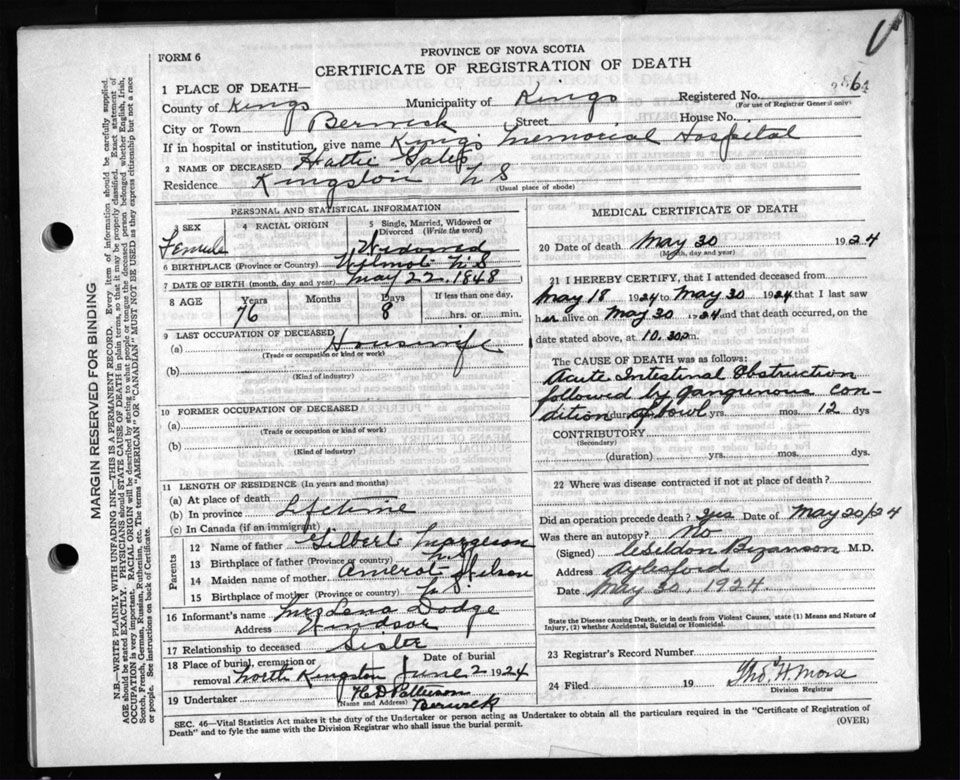 FORM 6
PROVINCE OF NOVA SCOTIA
CERTIFICATE OF REGISTRATION OF DEATH
1 PLACE OF DEATH—
County of Kings Municipality of Kings Registered No.
(For use of Registrar General only)
City or Town Berwick Street House No.
If in hospital or institution, give name Kings Memorial Hospital
2 NAME OF DECEASED Hattie Gates
Residence Kingston N S
(Usual place of abode)
PERSONAL AND STATISTICAL INFORMATION
3 SEX 4 RACIAL ORIGIN 5 Single, Married, Widowed or Divorced (Write the word)
Female Widowed
6 BIRTHPLACE (Province or Country) Wilmot N.S
7 DATE OF BIRTH (month, day and year) May 22, 1848
8 AGE Years Months Days If less than one day,
76 8 hrs. or min.
9 LAST OCCUPATION OF DECEASED
(a) Housewife
(Trade or occupation or kind or work)
(b)
(Kind of industry)
10 FORMER OCCUPATION OF DECEASED
(a)
(Trade or occupation or kind of work)
(b)
(Kind of industry)
11 LENGTH OF RESIDENCE (In years and months)
(a) At place of death
(b) In province Lifetime
(c) In Canada (if an immigrant)
Parents
12 Name of father Gilbert Margeson
13 Birthplace of father (Province or country) N.S
14 Maiden name of mother
15 Birthplace of mother (Province or country) N S
16 Informant's name Mrs Lena Dodge
Address Windsor
17 Relationship to deceased Sister
18 Place of burial, cremation or removal North Kingston Date of burial June 2 1924
19 Undertaker
(Name and Address) Berwick
MEDICAL CERTIFICATE OF DEATH
20 Date of death May 30 1924
(Month, day and year)
21 I HEREBY CERTIFY, that I attended deceased from
May 18 1924 to May 30 1924 that I last saw
her alive on May 30 1924 and that death occurred, on
date stated above, at 10.30 p.m.
The CAUSE OF DEATH was as follows:
Acute Intestinal Obstruction
followed by gangrenous con-
dition of bowl (duration) yrs. mos. 12 dys
CONTRIBUTORY
(Secondary)
(duration) yrs. mos. dys.
22 Where was disease contracted if not at place of death?
Did an operation precede death? yes Date of May 20/24
Was there an autopsy? No
(Signed) M.D.
Address Aylesford
Date May 30, 1924.
State the Disease causing Death, or in death from Violent Causes, state (1) Means and Nature of
Injury, (2) whether Accidental, Suicidal or Homicidal.
23 Registrar's Record Number
24 Filed 19
Division Registrar
SEC. 46—Vital Statistics Act makes it the duty of the Undertaker or person acting as Undertaker to obtain all the particulars required in the "Certificate of Registration of
Death" and to fyle the same with the Division Registrar who shall issue the burial permit. (OVER)
MARGIN RESERVED FOR BINDING
N.B.—WRITE PLAINLY WITH UNFADING INK—THIS IS A PERMANENT RECORD. Every item of information should be carefully supplied.
AGE should be stated EXACTLY. PHYSICIANS should STATE CAUSE OF DEATH in plain terms, so that it may be properly classified. Exact statement of
OCCUPATION is very important. RACIAL ORIGIN will be described by stating to what people or tongue the deceased person belonged whether English, Irish,
Scotch, French, German, Russian, Ruthenian, etc. The terms "AMERICAN" or "CANADIAN" MUST NOT BE USED as they express citizenship but not a race
or people. See instructions on back of Certificate.